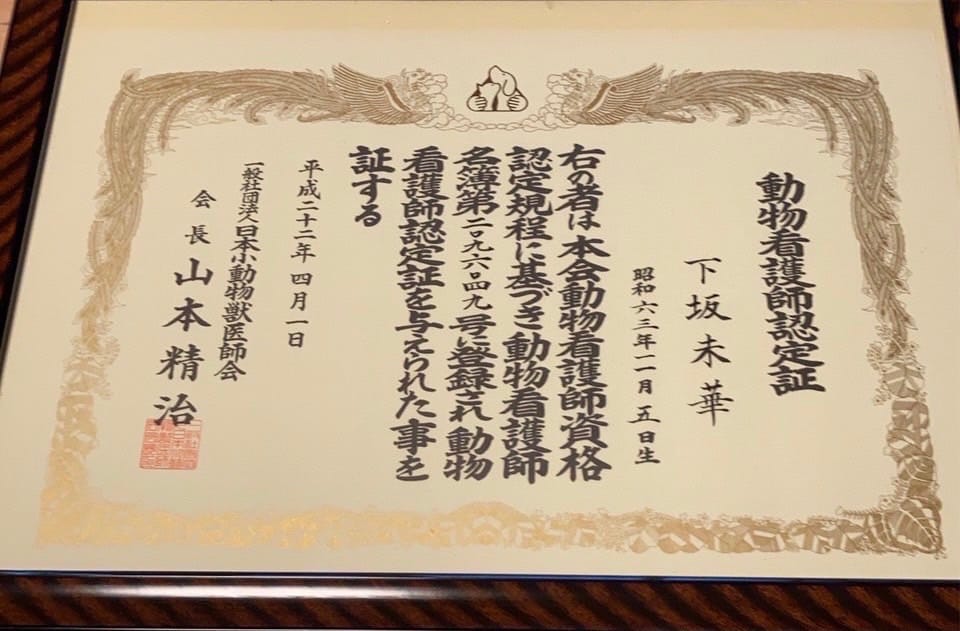 動物看護師認定証
下坂未華
昭和六三年一一月五日生
右の者は本会動物看護師資格
認定規程に基づき動物看護師
名簿第二〇九六〇四九号に登録され動物
看護師認定証を与えられた事を
証する
平成二十二年四月一日
一般社団法人日本小動物獣医師会
会長 山本精治